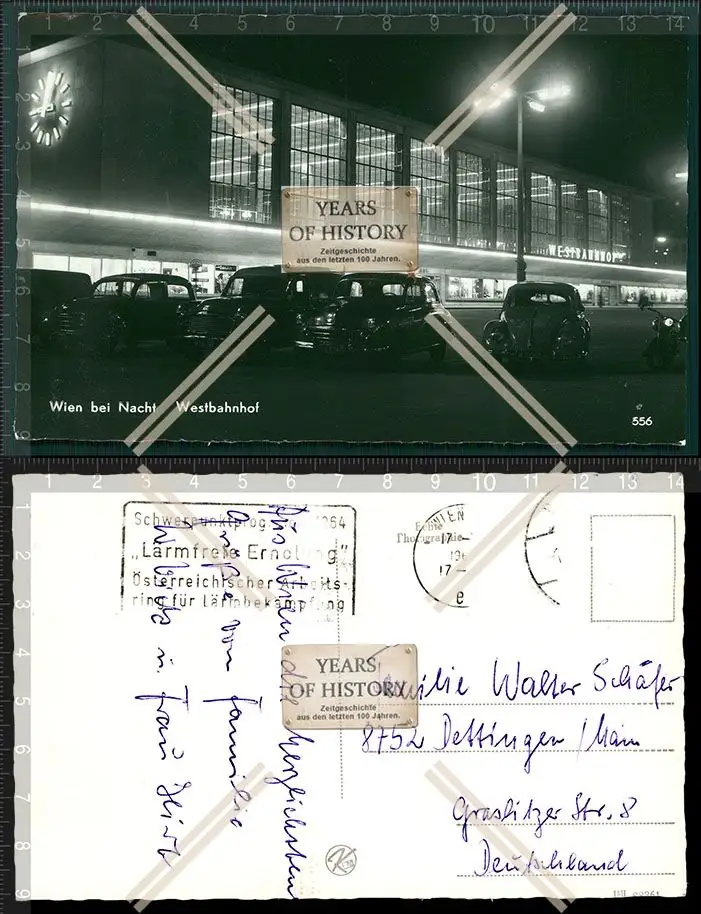 1 2 3 4 5 6 7 8 9 10 11 12 13 14
WESTBAHNHOF
YEARS
OF HISTORY
Zeitgeschichte
aus den letzten 100 Jahren.
Wien bei Nacht Westbahnhof
556
1 2 3 4 5 6 7 8 9 10 11 12 13 14
Schwerpunktprog 1964
„Lärmfreie Erholung"
Österreichischer Arbeits-
ring für Lärmbekämpfung
WIEN
17 -
196
17 -
e
Echte
Photographie
Aus Wien die herzlichsten
Grüße von Familie
u. Frau
YEARS
OF HISTORY
Zeitgeschichte
aus den letzten 100 Jahren.
Familie Walter Schäfer
8752 Dettingen / Main
Graslitzer Str. 8
Deutschland
K